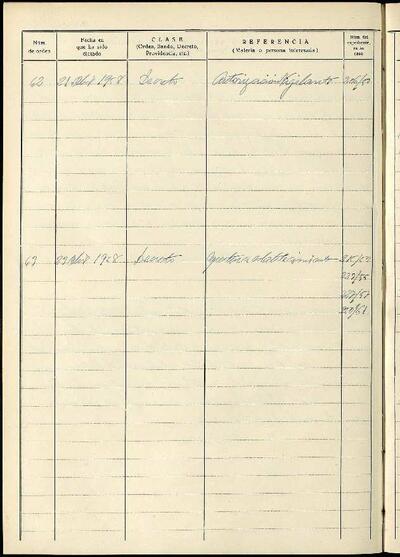 Núm. de orden
Fecha en que ha sido dictado
CLASE
(Orden, Bando, Decreto, Providencia, etc.)
REFERENCIA
(Materia o persona interesada)
Núm. del expediente, en su caso
62 21 Abril 1958 Decreto Autorización Vigilante
63 23 Abril 1958 Decreto Apertura establecimiento